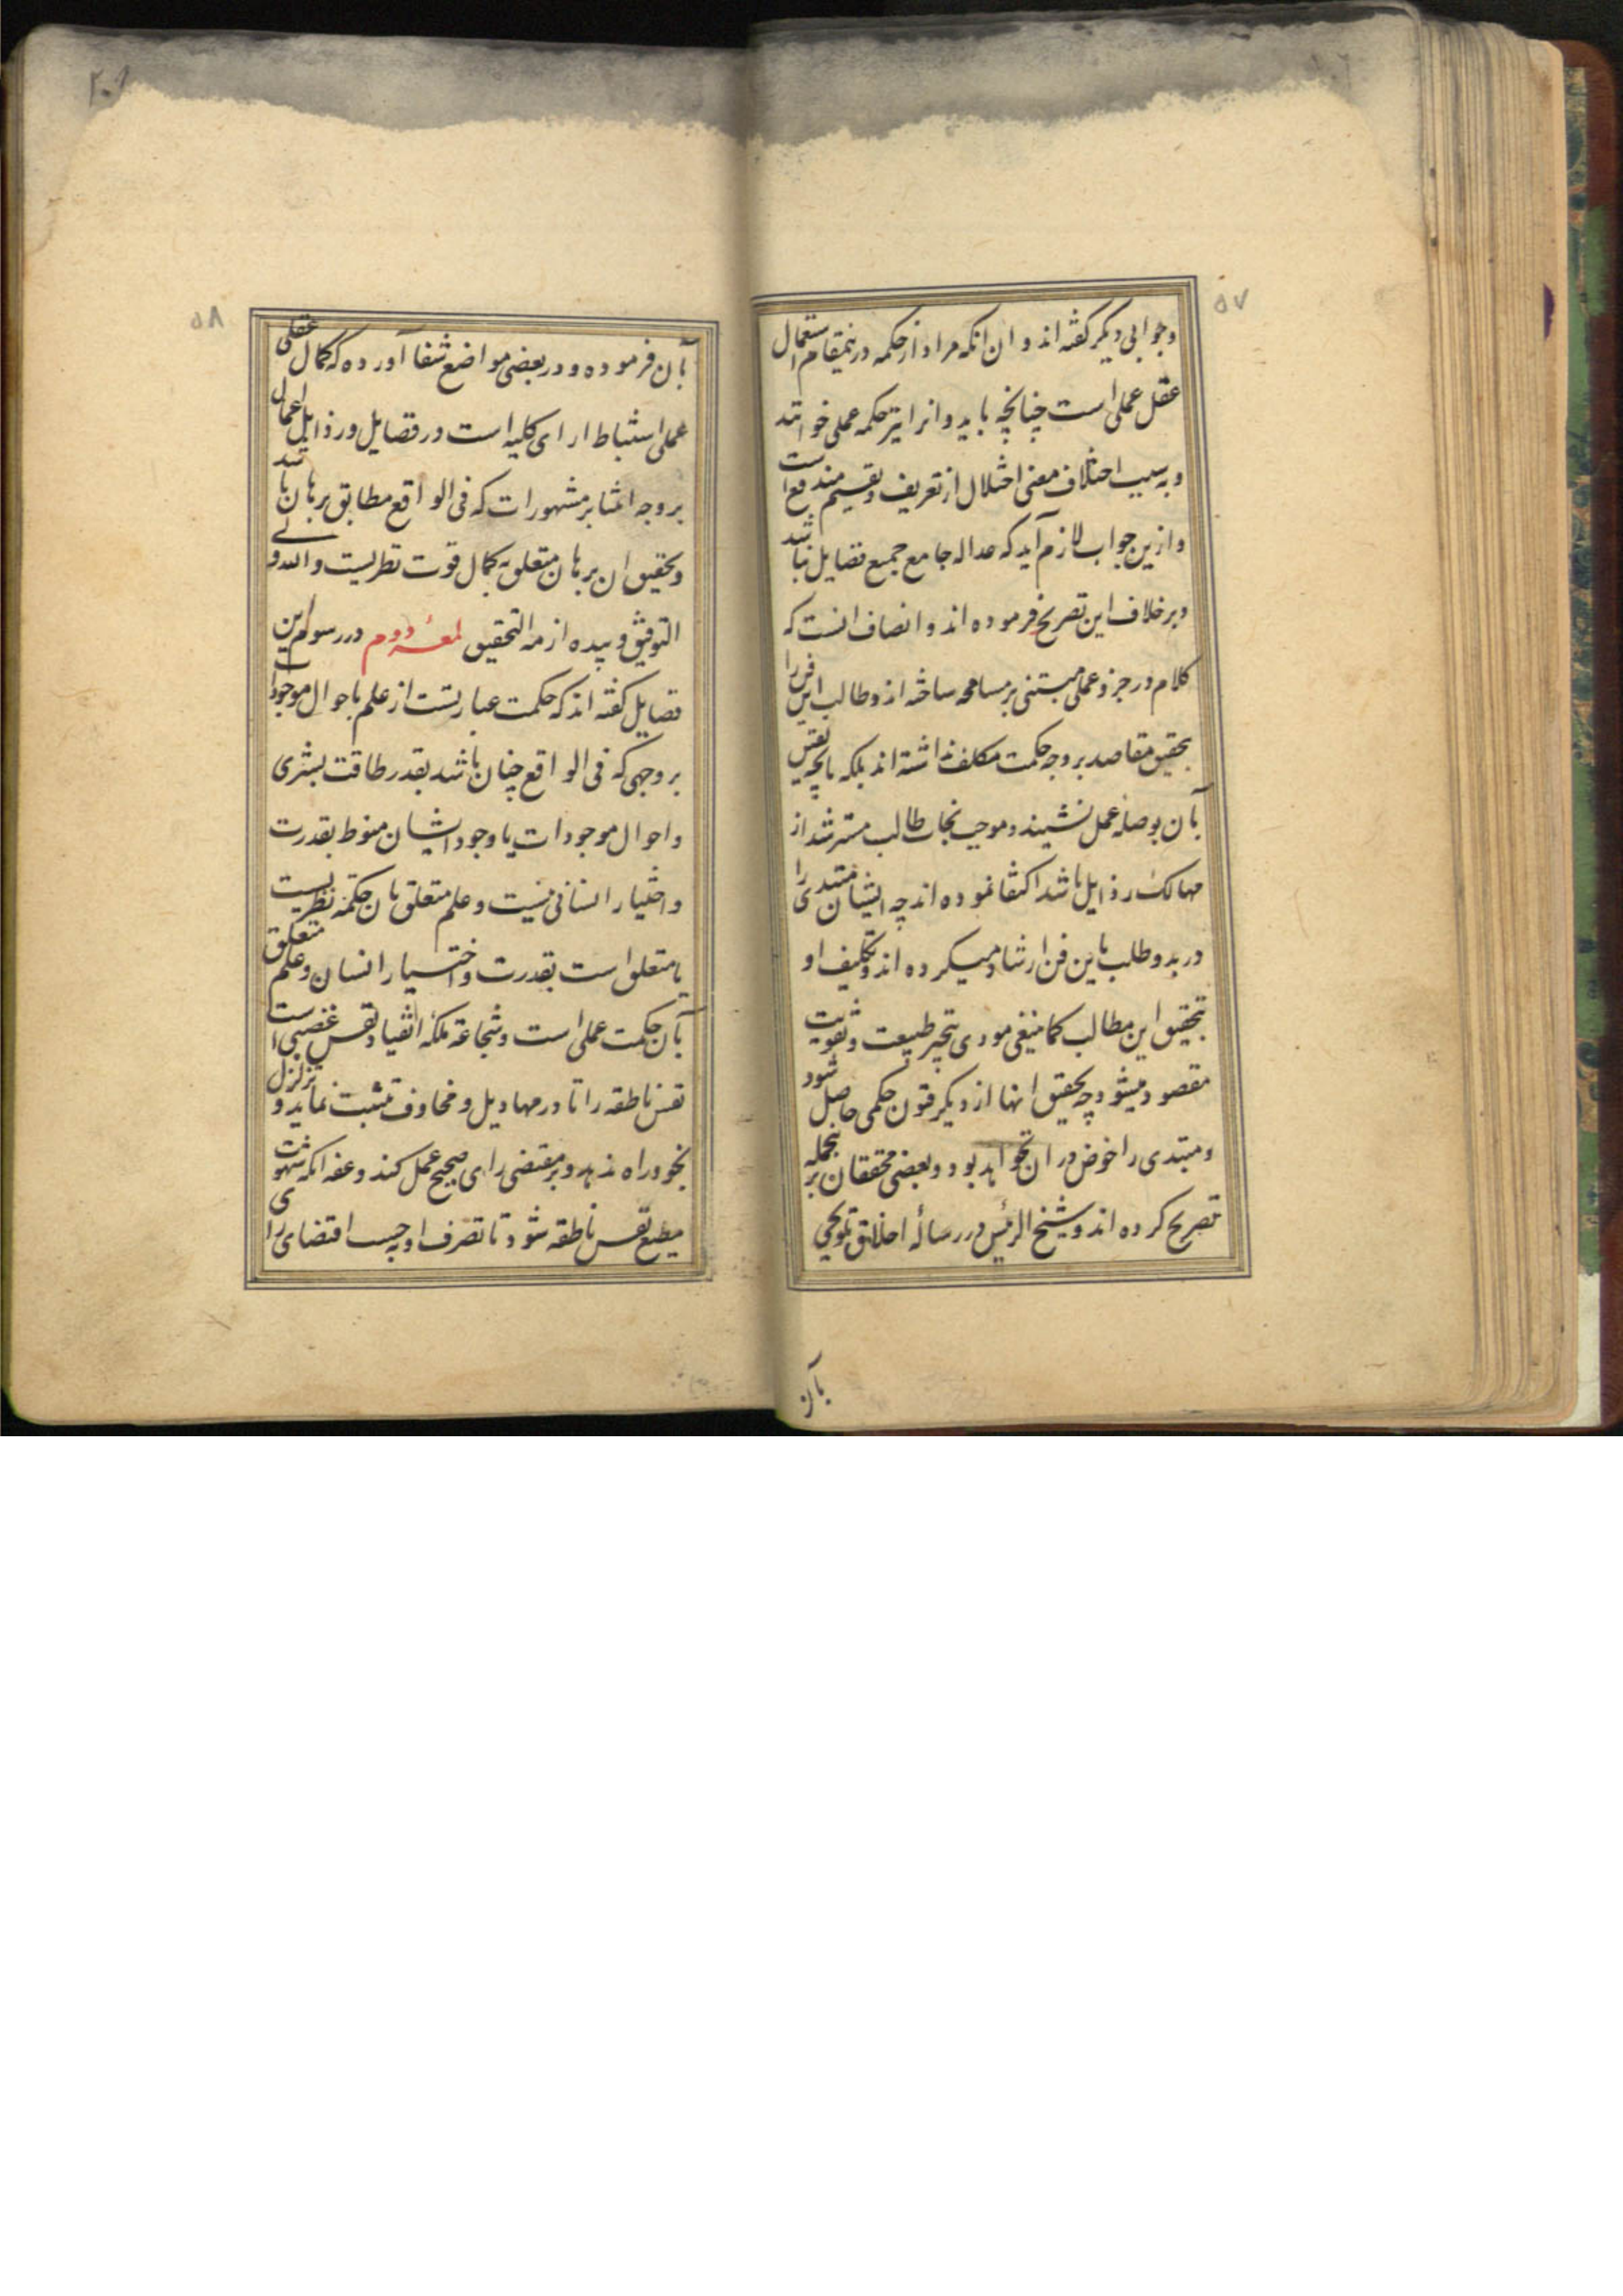 ۵۷
وجوابی دیکر کفته اند و ان انکه مراد از حکمه درینمقام استعمال
عقل عملی است چنانچه باید و انرا نیز حکمه عملی خوانند
وبه سبب اختلاف معنی اختلال از تعریف و تقسیم مندفع است
و ازین جواب لازم آید که عداله جامع جمیع فضایل نباشد
و برخلاف این تصریح فرموده اند و انصاف انست که
کلام در جزو عملی مبتنی بر مسامحه ساخته اند و طالب این فن را
بتحقیق مقاصد بر وجه حکمت مکلف نداشته اند بلکه بانچه نفس
بآن بوصله عمل نشیند و موجب نجات طالب مسترشد از
مهالک رذایل باشد اکتفا نموده اند چه ایشان مبتدی را
در بدو طلب باین فن ارشاد میکرده اند و تکلیف او
بتحقیق این مطالب کما ینبغی مودی بتحیر طبیعت و تفویت
مقصود میشود چه تحقیق انها از دیکر فنون حکمی حاصل شود
و مبتدی را خوض در ان نخواهد بود و بعضی محققان برینجمله
تصریح کرده اند و شیخ الرئیس در رساله اخلاق تلویحی
بآن
۵۸
بآن فرموده و در بعضی مواضع شفا آورده که کمال عقلی
عملی استنباط ارای کلیه است در فضایل و رذایل اعمال
بر وجه ابتنا بر مشهورات که فی الواقع مطابق برهان باشد
و تحقیق ان برهان متعلق بکمال قوت نظریست والله ولی
التوفیق و بیده ازمة التحقیق لمعۀ دوم در رسوم این
فضایل کفته اند که حکمت عبارتست از علم باحوال موجودات
بر وجهی که فی الواقع چنان باشد بقدر طاقت بشری
و احوال موجودات یا وجود ایشان منوط بقدرت
و اختیار انسانی نیست و علم متعلق بان حکمة نظریست
یا متعلق است بقدرت و اختیار انسان و علم متعلق
بآن حکمت عملی است و شجاعة ملکه انقیاد نفس غضبی است
نفس ناطقه را تا در مهاویل و مخاوف تثبت نماید و تزلزل
بخود راه ندهد و بر مقتضی رای صحیح عمل کند و عفه انکه شهوت
مطیع نفس ناطقه شود تا تصرف او بحسب اقتضای رای